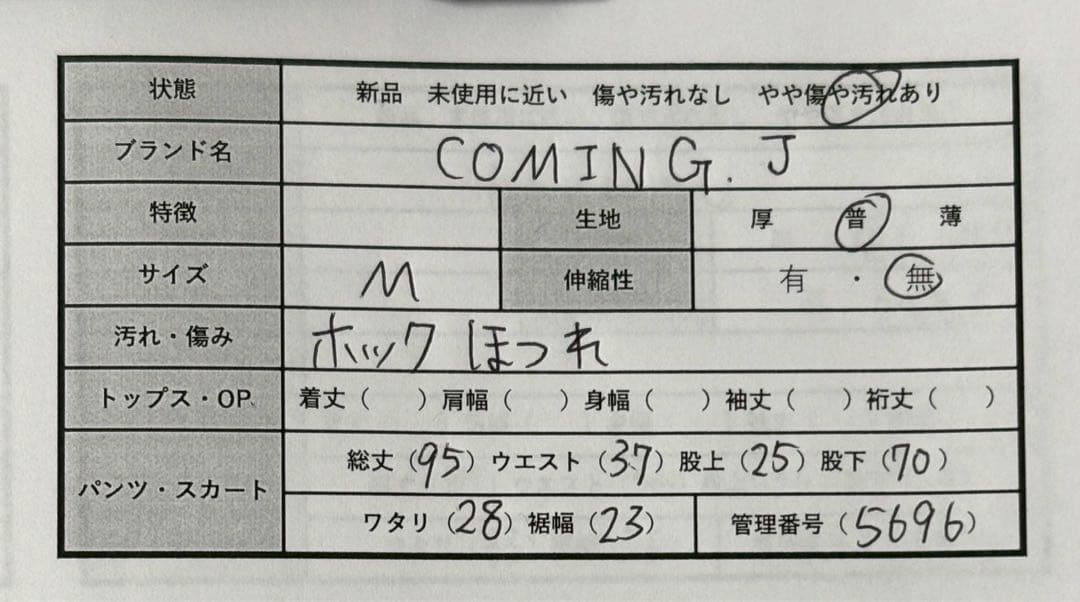 状態 新品 未使用に近い 傷や汚れなし やや傷や汚れあり
ブランド名 COMING.J
特徴 生地 厚 普 薄
サイズ M 伸縮性 有 ・ 無
汚れ・傷み ホック ほつれ
トップス・OP 着丈（ ）肩幅（ ）身幅（ ）袖丈（ ）裄丈（ ）
パンツ・スカート 総丈（95）ウエスト（37）股上（25）股下（70）
ワタリ（28）裾幅（23） 管理番号（5696）